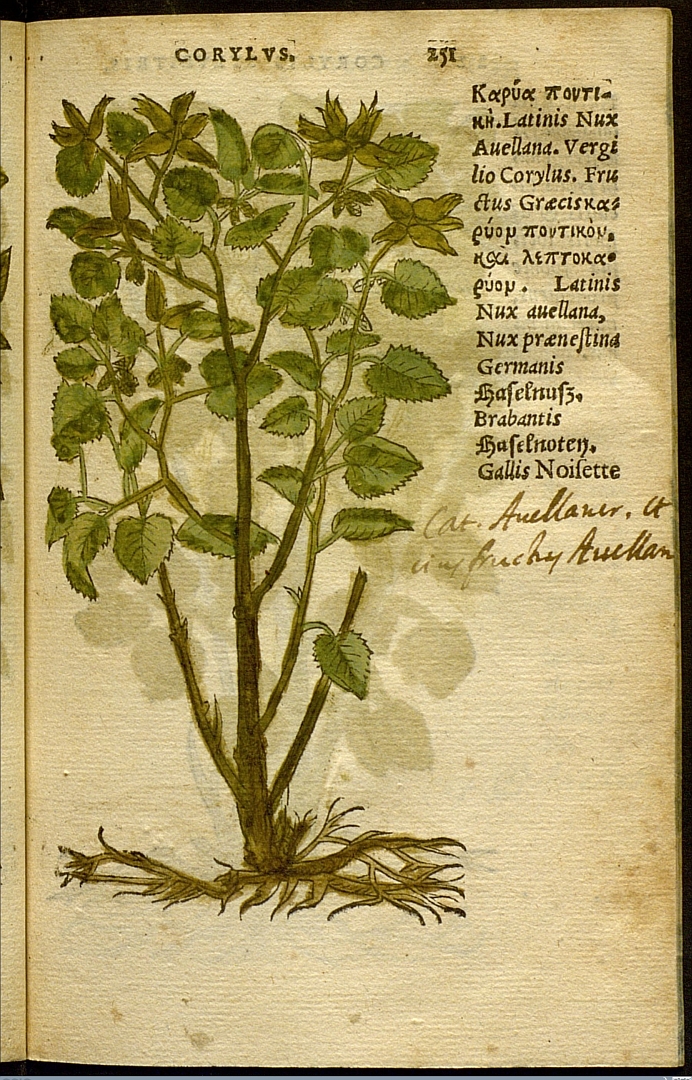 CORYLVS. 251
Καρύα ποντι-
κὴ. Latinis Nux
Auellana. Vergi
lio Corylus. Fru
ctus Græcis κα-
ρύομ ποντικὸμ,
καὶ λεπτοκα-
ρύομ. Latinis
Nux auellana,
Nux prænestina
Germanis
Haselnusz.
Brabantis
Haselnoten.
Gallis Noisette
Cat. Auellaner. et
Auellan